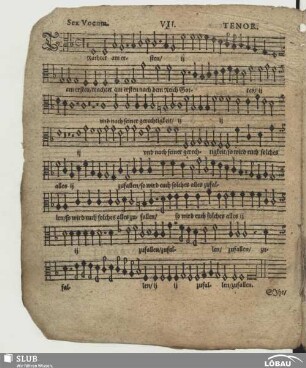 Sex Vocum. VII. TENOR.
Trachtet am er- sten/ ij
am ersten/trachtet am ersten nach dem reich Got- tes/ ij
vnd nach seiner gerechtigkeit/ ij ij
ij vnd nach seiner gerech- tigkeit/so wird euch solches
alles ij zufallen/so wird euch solches alles zufal-
len/so wird euch solches alles zu- fallen/ so wird euch solches alles ij
ij zufallen/zufal- len/ zufallen/ zu-
fal- len/ ij ij zufal- len/zufallen.
SLUB
Wir führen Wissen.
LÖBAU